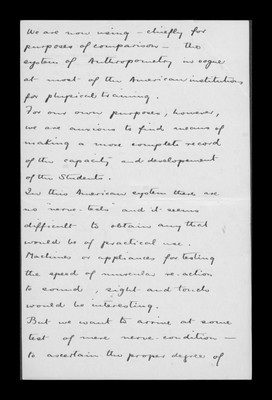 We are now using – chiefly for
purposes of comparison – the
system of Anthropometry in vogue
at most of the American institutions
for physical training.
For our own purposes, however,
we are anxious to find means of
making a more complete record
of the capacity and development
of the Students.
In this American system there are
no "nerve-tests" and it seems
difficult to obtain any that
would be of practical use.
Machines or appliances for testing
the speed of muscular re-action
to sound, sight and touch
would be interesting.
But we want to arrive at some
test of mere nerve-condition –
to ascertain the proper degree of